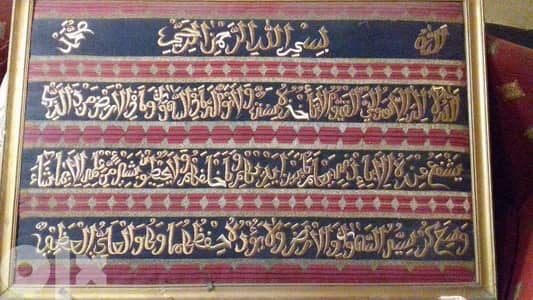 الله بسم الله الرحمن الرحيم محمد
الله لا اله الا هو الحي القيوم لا تأخذه سنة ولا نوم له ما في السموات وما في الارض من ذا الذي
يشفع عنده الا بإذنه يعلم ما بين ايديهم وما خلفهم ولا يحيطون بشيء من علمه الا بما شاء
وسع كرسيه السموات والارض ولا يؤده حفظهما وهو العلي العظيم
olx